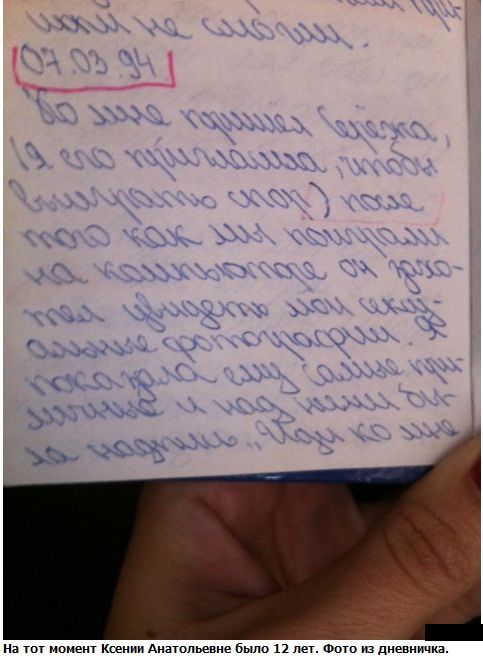 не смогли.
07.03.94
Ко мне пришёл Серёжа,
(я его пригласила, чтобы
выиграть спор) после
того как мы поиграли
на компьютере он захо-
тел увидеть мои сексу-
альные фотографии. Я
показала ему самые при-
личные и над ними бы-
ла надпись „Иди ко мне
На тот момент Ксении Анатольевне было 12 лет. Фото из дневничка.